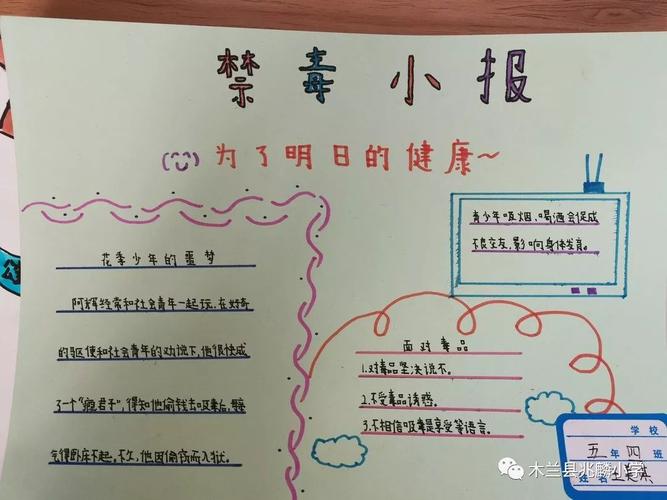 禁毒小报
为了明日的健康～
青少年吸烟、喝酒会促成
不良交友,影响身体发育。
花季少年的噩梦
阿辉经常和社会青年一起玩,在好奇
的驱使和社会青年的劝说下,他很快成
了一个"瘾君子",得知他偷钱去吸毒后,
气得卧床不起。不久,他因偷窃而入狱。
面对毒品
1.对毒品坚决说不。
2.不受毒品诱惑。
3.不相信吸毒是享受等语言。
学校
五年四班
姓名
木兰县兆麟小学